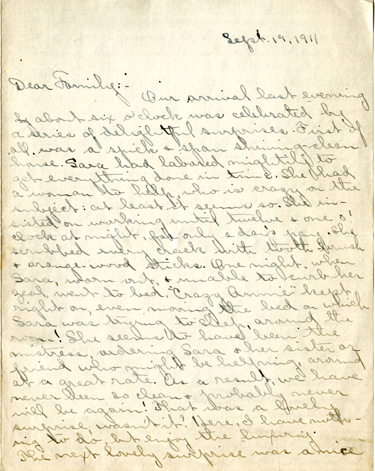 Sept. 19, 1911
Dear Family:-
Our arrival last evening
by about six o'clock was celebrated by
a series of delightful surprises. First of
all, was a spick & span shining-clean
house. Sara had labored mightily to
get everything done in time. She had
a woman to help who is crazy on the
subject; at least it seems so. She in-
sisted on working until twelve & one o'
clock at night, for only a day's pay. She
scrubbed every crack with tooth brushes
& orange-wood sticks. One night, when
Sara, worn out, & unable to curb her
zeal, went to bed, "Crazy Annie" kept
right on, even moving the bed on which
Sara was trying to sleep, around the
room! She seems to have been the
mistress, ordering Sara & her sister or
friend who might be helping around
at a great rate. As a result, we have
never been so clean & probably never
will be again! That was a lovely
surprise, wasn't it! Here, I have noth-
ing to do, but enjoy the luxury.
The next lovely surprise was a nice